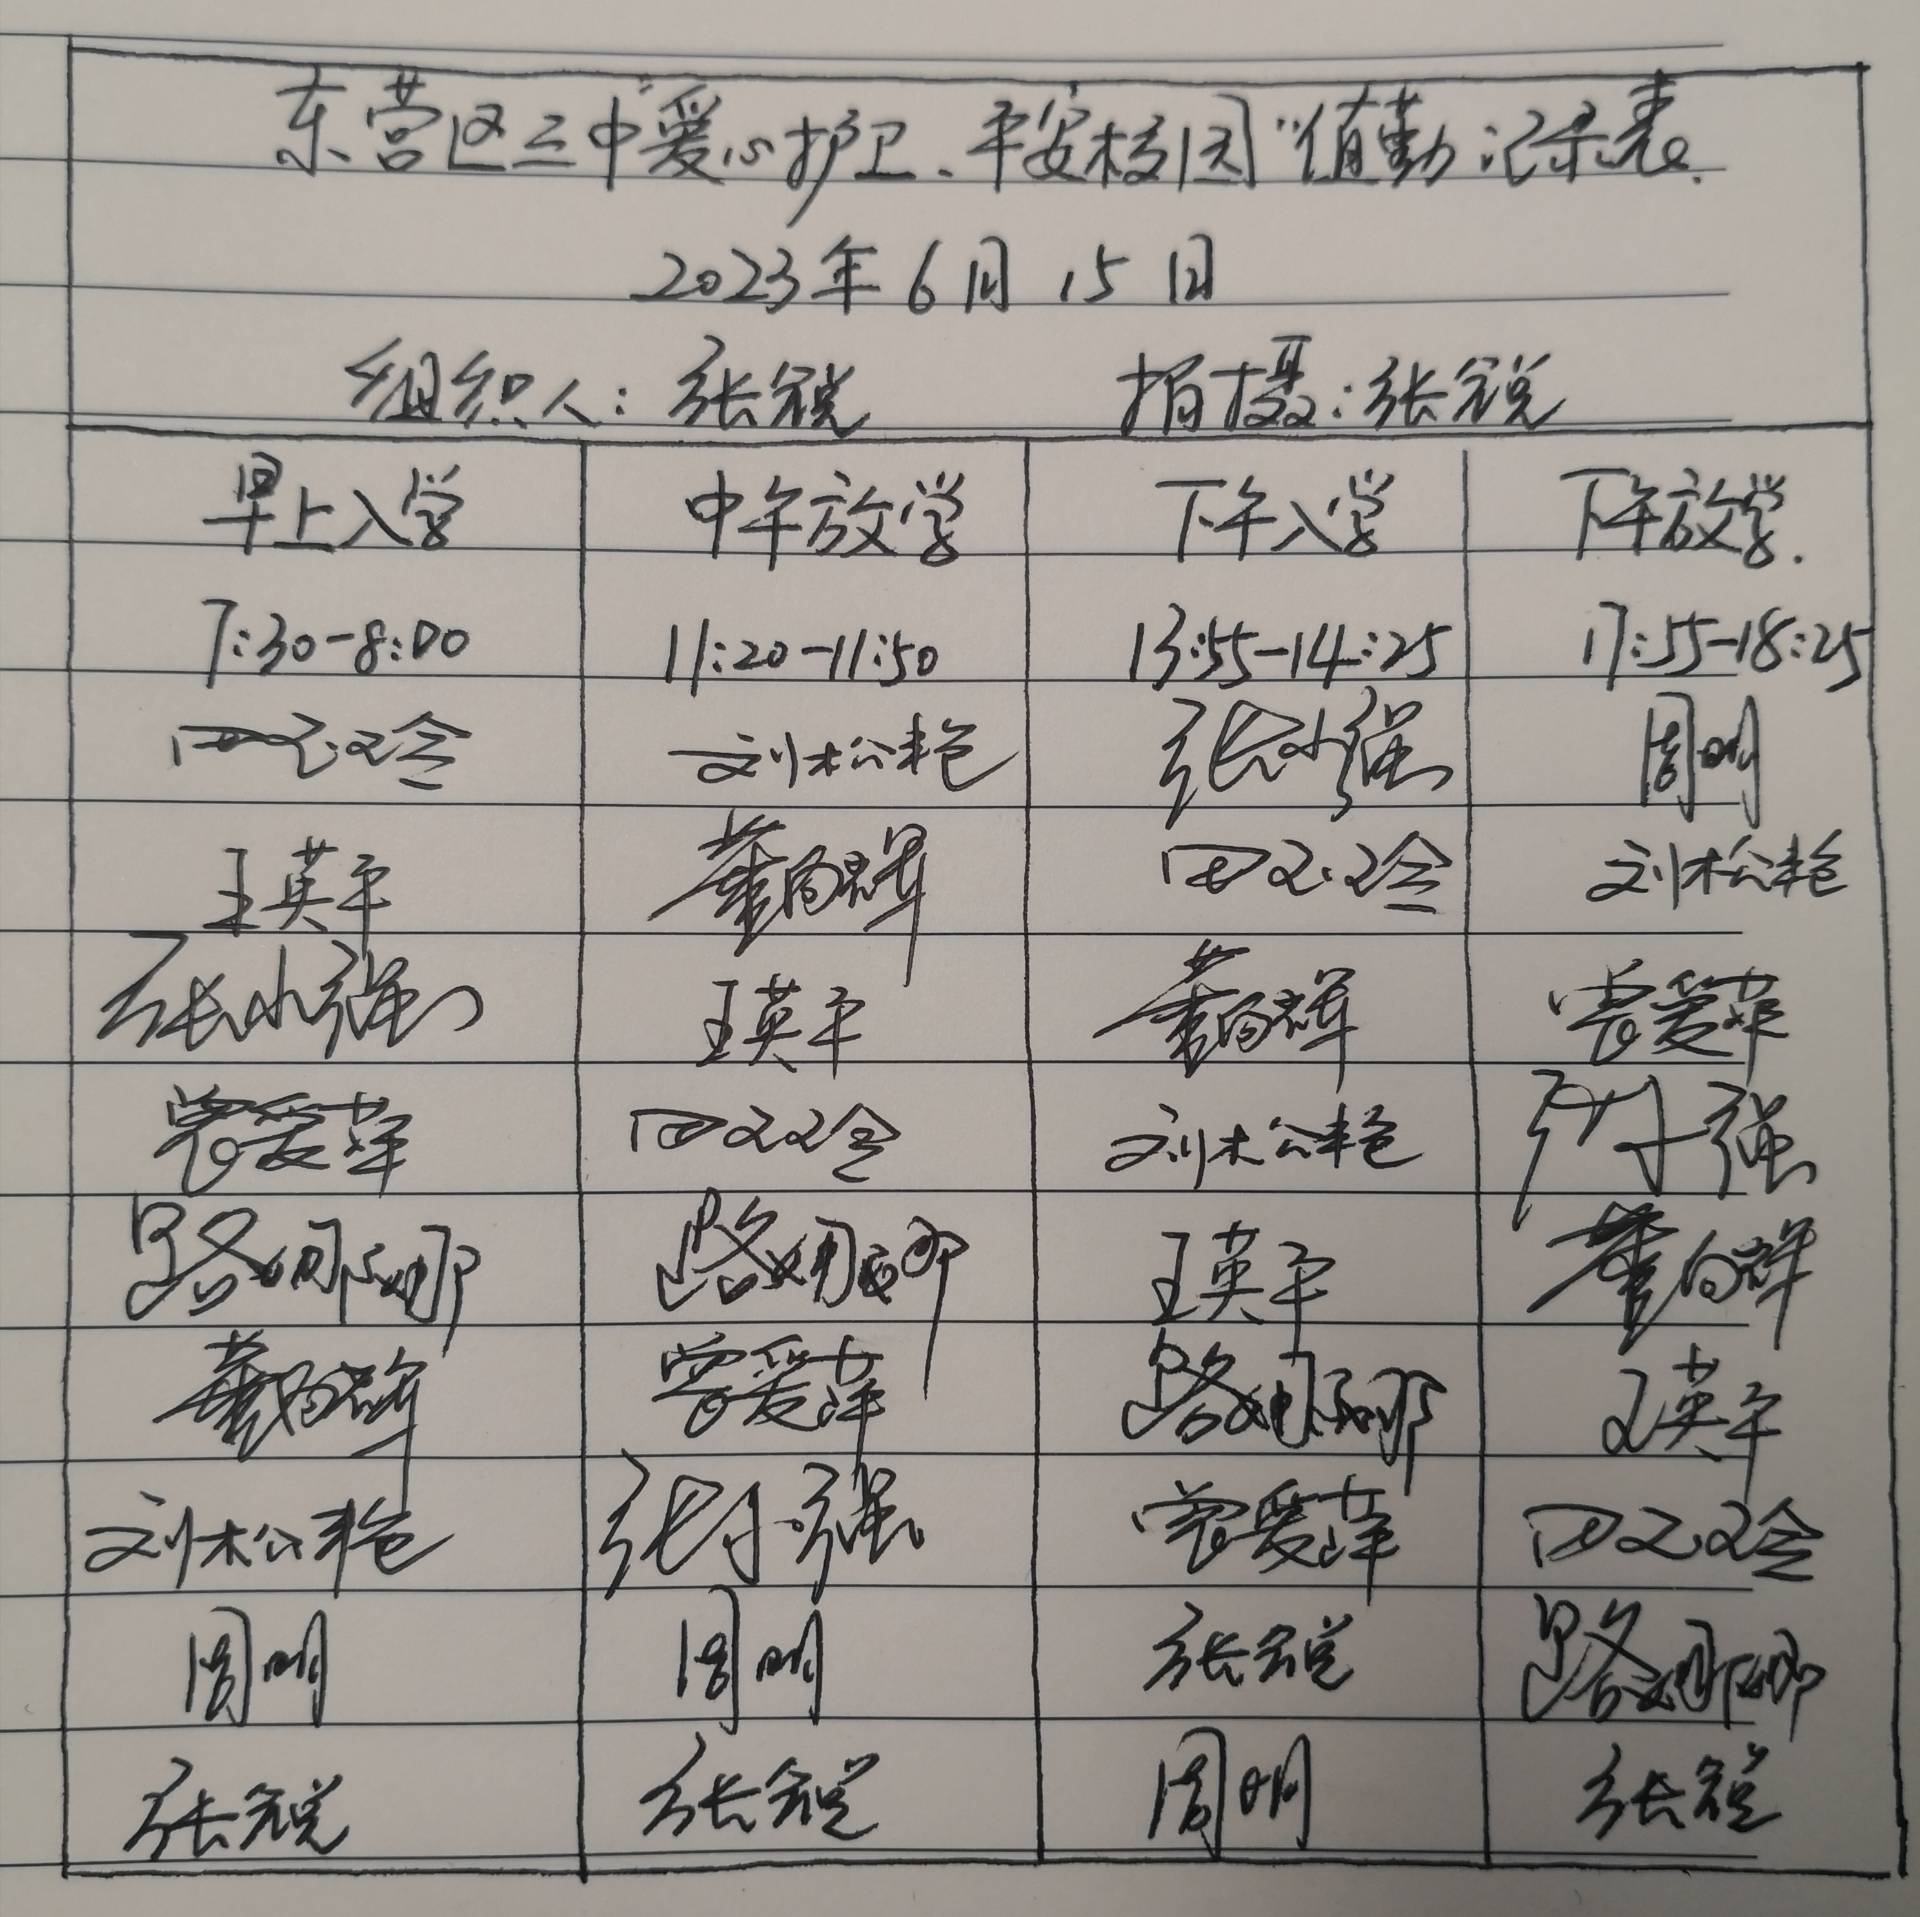 东营区三中"爱心护卫、平安校园"值勤记录表.
2023年6月15日
组织人：张锐 拍摄：张锐
早上入学 中午放学 下午入学 下午放学.
7:30-8:00 11:20-11:50 13:55-14:25 17:55-18:25
刘松艳 张小强 周明
王英平 董向辉 刘松艳
张小强 王英平 董向辉 曾爱萍
曾爱萍 刘松艳 张小强
路娜娜 路娜娜 王英平 董向辉
董向辉 曾爱萍 路娜娜 王英平
刘松艳 张小强 曾爱萍
周明 周明 张锐 路娜娜
张锐 张锐 周明 张锐